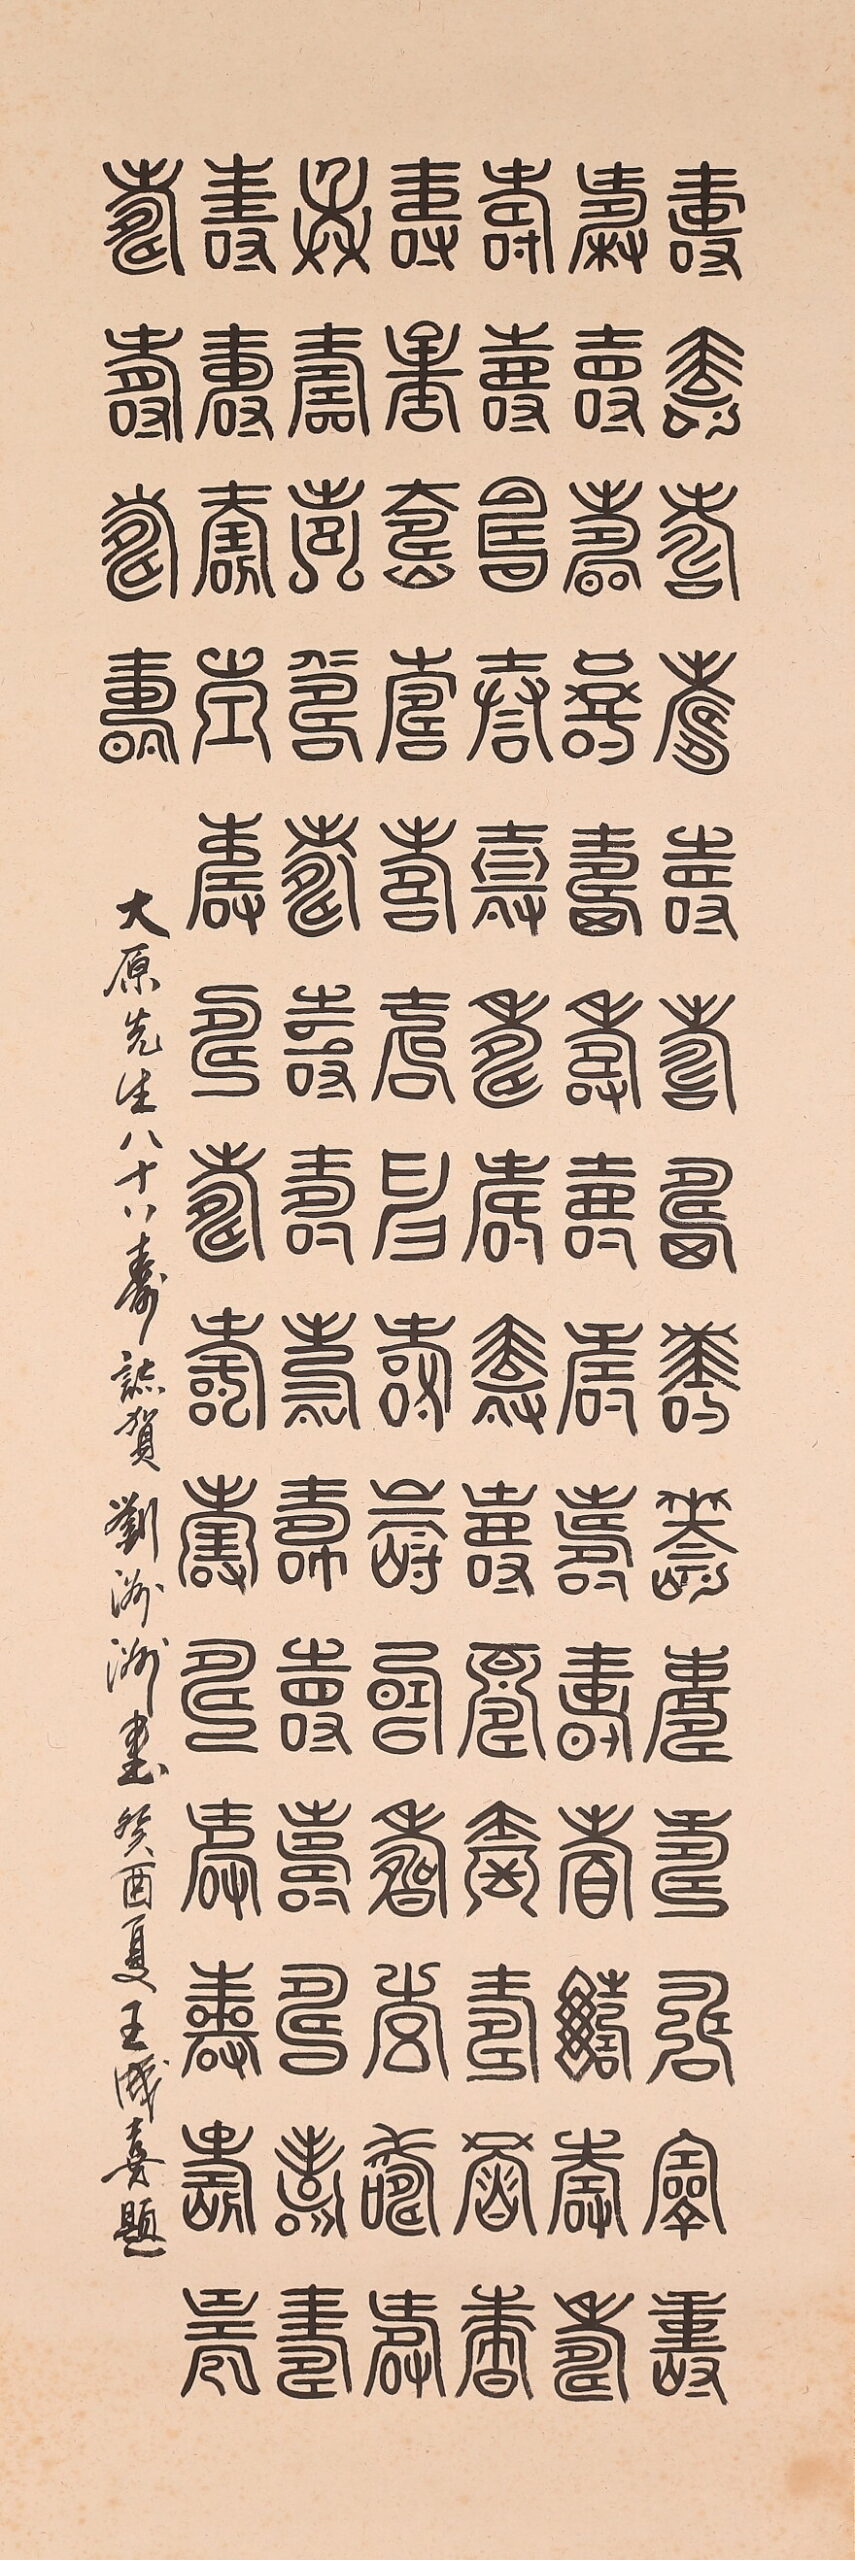 壽壽壽壽壽壽壽壽壽壽壽壽壽壽
壽壽壽壽壽壽壽壽壽壽壽壽壽壽
壽壽壽壽壽壽壽壽壽壽壽壽壽壽
壽壽壽壽壽壽壽壽壽壽壽壽壽壽
壽壽壽壽壽壽壽壽壽壽壽壽壽壽
壽壽壽壽壽壽壽壽壽壽壽壽壽壽
壽壽壽壽
大原先生八十八壽誌賀 劉洲書 癸酉夏王成喜題